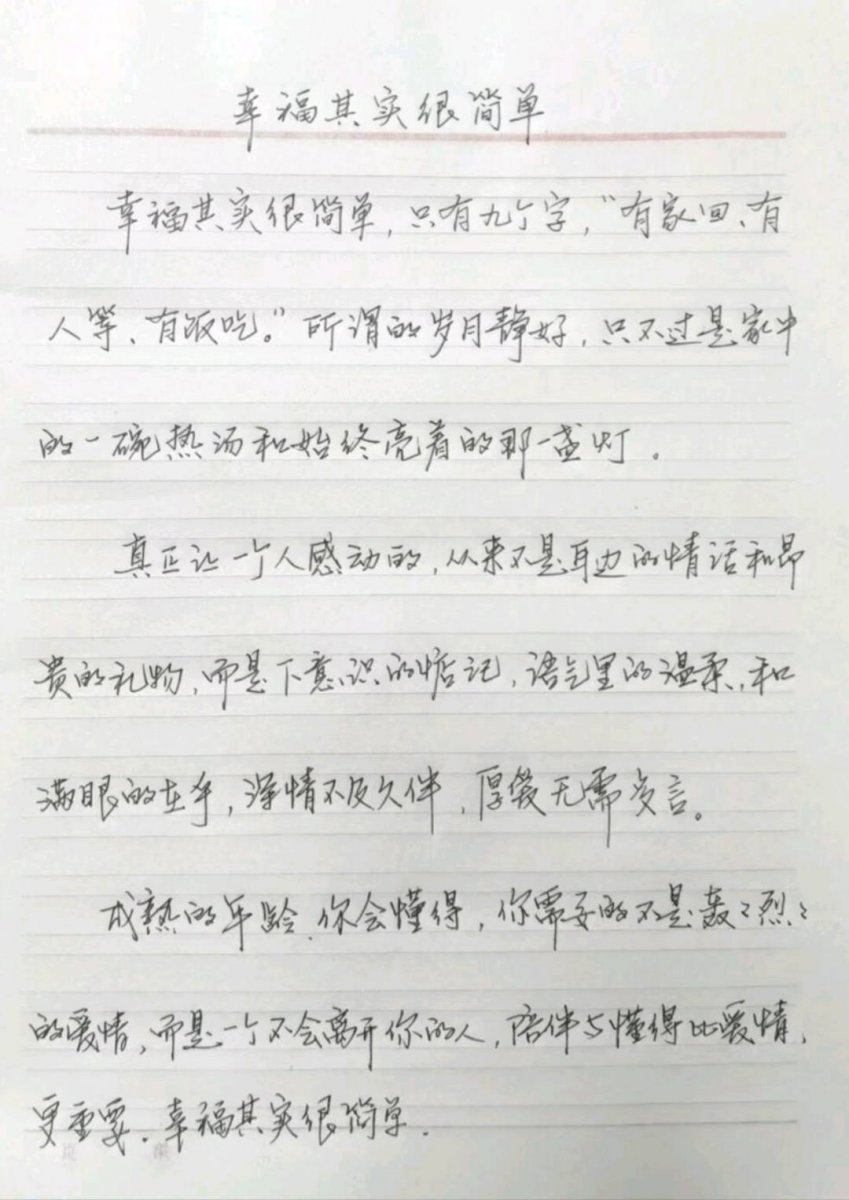 幸福其实很简单
幸福其实很简单,只有九个字,“有家回、有
人等、有饭吃。”所谓的岁月静好,只不过是家中
的一碗热汤和始终亮着的那一盏灯。
真正让一个人感动的,从来不是耳边的情话和昂
贵的礼物,而是下意识的惦记,语气里的温柔,和
满眼的在乎,深情不及久伴,厚爱无需多言。
成熟的年龄、你会懂得,你需要的不是轰々烈々
的爱情,而是一个不会离开你的人,陪伴与懂得比爱情,
更重要.幸福其实很简单.